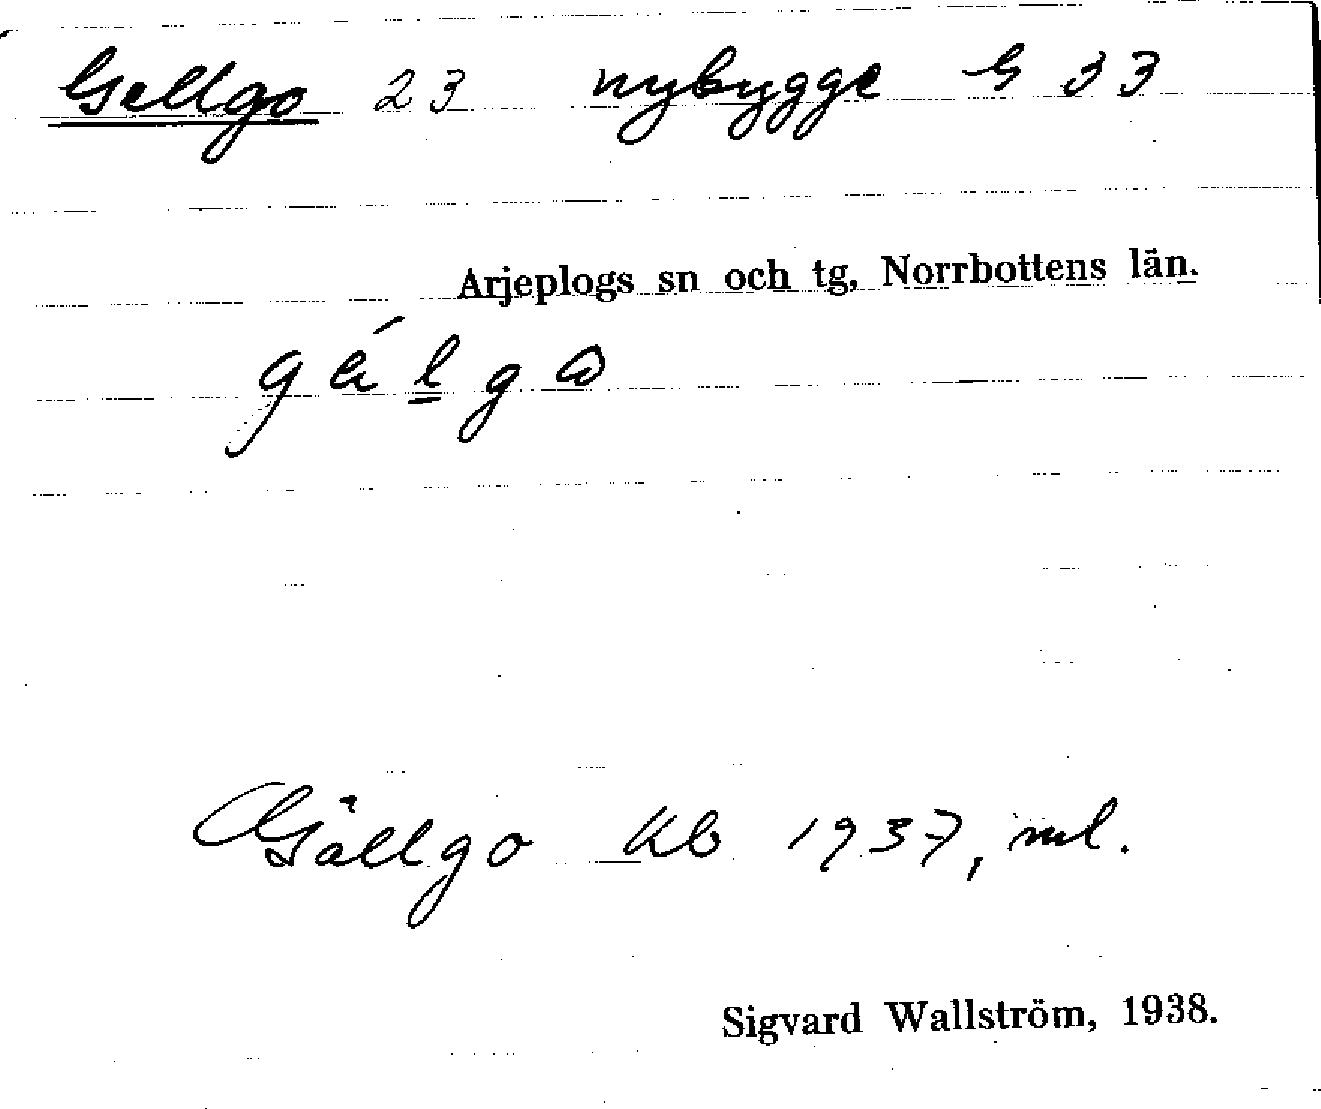 Gellgo 23 nybygge G 33
Arjeplogs sn och tg, Norrbottens län.
Gällgo Kb 1937, ml.
Sigvard Wallström, 1938.